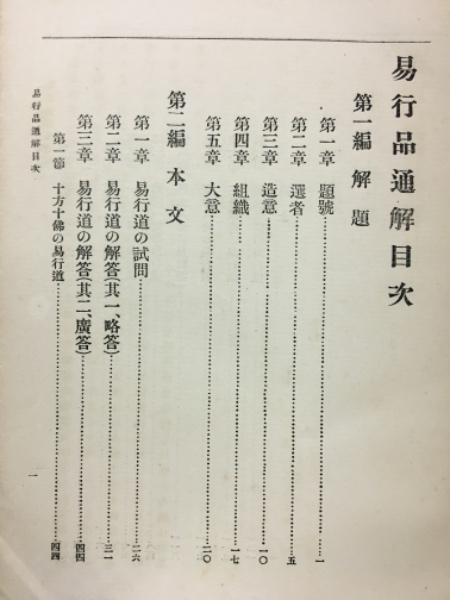 易行品通解目次
第一編 解題
第一章 題號……一
第二章 選者……五
第三章 造意……一〇
第四章 組織……一七
第五章 大意……二〇
第二編 本文
第一章 易行道の試問……二六
第二章 易行道の解答(其一、略答)……三一
第三章 易行道の解答(其二、廣答)……四四
第一節 十方十佛の易行道……四四
易行品通解目次
一